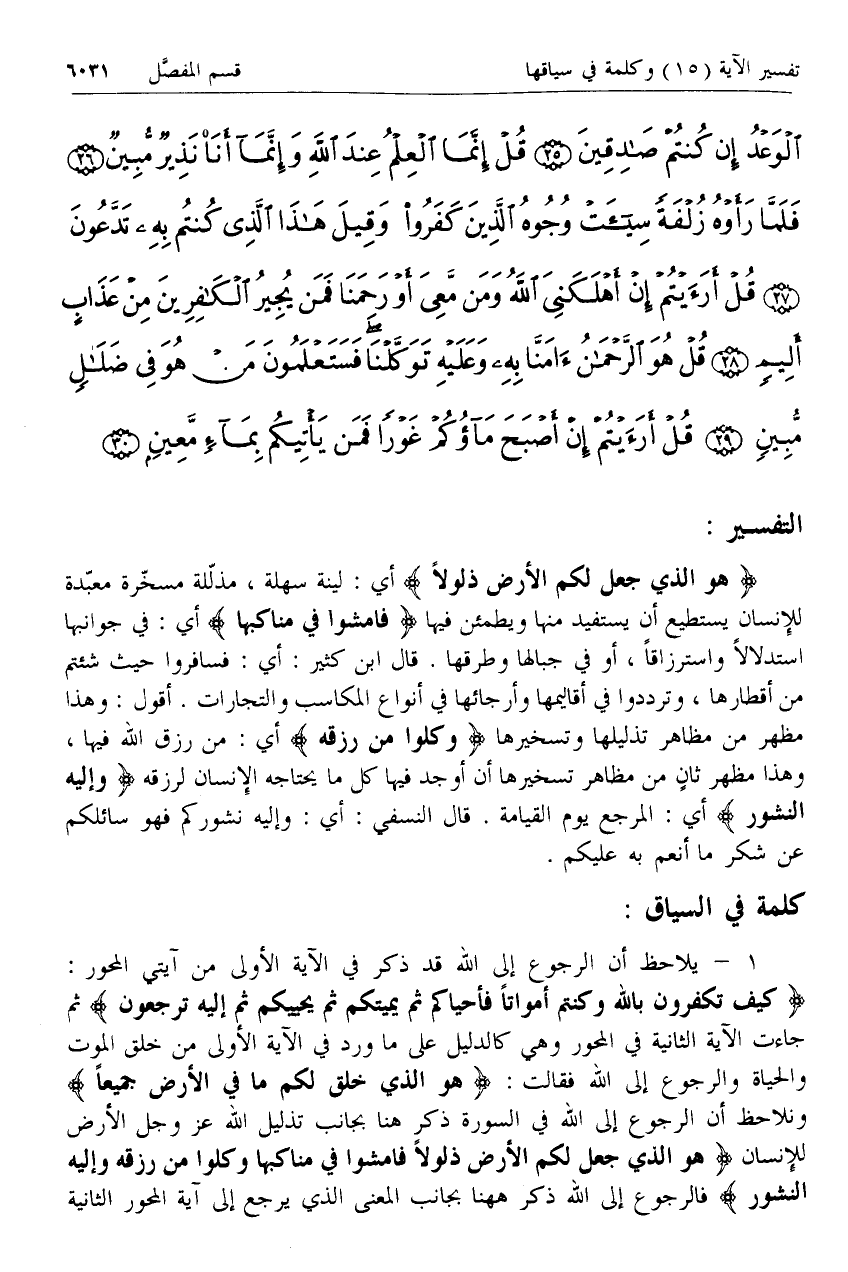 تفسير الآية (١٥) وكلمة في سياقها قسم المفصَّل ٦٠٣١
ٱلْوَعْدُ إِن كُنتُمْ صَـٰدِقِينَ ٢٥ قُلْ إِنَّمَا ٱلْعِلْمُ عِندَ ٱللَّهِ وَإِنَّمَآ أَنَا۠ نَذِيرٌ مُّبِينٌ ٢٦
فَلَمَّا رَأَوْهُ زُلْفَةً سِيٓـَٔتْ وُجُوهُ ٱلَّذِينَ كَفَرُوا۟ وَقِيلَ هَـٰذَا ٱلَّذِى كُنتُم بِهِۦ تَدَّعُونَ
٢٧ قُلْ أَرَءَيْتُمْ إِنْ أَهْلَكَنِىَ ٱللَّهُ وَمَن مَّعِىَ أَوْ رَحِمَنَا فَمَن يُجِيرُ ٱلْكَـٰفِرِينَ مِنْ عَذَابٍ
أَلِيمٍ ٢٨ قُلْ هُوَ ٱلرَّحْمَـٰنُ ءَامَنَّا بِهِۦ وَعَلَيْهِ تَوَكَّلْنَا ۖ فَسَتَعْلَمُونَ مَنْ هُوَ فِى ضَلَـٰلٍ
مُّبِينٍ ٢٩ قُلْ أَرَءَيْتُمْ إِنْ أَصْبَحَ مَآؤُكُمْ غَوْرًا فَمَن يَأْتِيكُم بِمَآءٍ مَّعِينٍۭ ٣٠
التفسير :
﴿ هو الذي جعل لكم الأرض ذلولاً ﴾ أي : لينة سهلة ، مذلّلة مسخّرة معبّدة
للإنسان يستطيع أن يستفيد منها ويطمئن فيها ﴿ فامشوا في مناكبها ﴾ أي : في جوانبها
استدلالاً واسترزاقاً ، أو في جبالها وطرقها . قال ابن كثير : أي : فسافروا حيث شئتم
من أقطارها ، وترددوا في أقاليمها وأرجائها في أنواع المكاسب والتجارات . أقول : وهذا
مظهر من مظاهر تذليلها وتسخيرها ﴿ وكلوا من رزقه ﴾ أي : من رزق الله فيها ،
وهذا مظهر ثانٍ من مظاهر تسخيرها أن أوجد فيها كل ما يحتاجه الإنسان لرزقه ﴿ وإليه
النشور ﴾ أي : المرجع يوم القيامة . قال النسفي : أي : وإليه نشوركم فهو سائلكم
عن شكر ما أنعم به عليكم .
كلمة في السياق :
١ – يلاحظ أن الرجوع إلى الله قد ذكر في الآية الأولى من آيتي المحور :
﴿ كيف تكفرون بالله وكنتم أمواتاً فأحياكم ثم يميتكم ثم يحييكم ثم إليه ترجعون ﴾ ثم
جاءت الآية الثانية في المحور وهي كالدليل على ما ورد في الآية الأولى من خلق الموت
والحياة والرجوع إلى الله فقالت : ﴿ هو الذي خلق لكم ما في الأرض جميعاً ﴾
ونلاحظ أن الرجوع إلى الله في السورة ذكر هنا بجانب تذليل الله عز وجل الأرض
للإنسان ﴿ هو الذي جعل لكم الأرض ذلولاً فامشوا في مناكبها وكلوا من رزقه وإليه
النشور ﴾ فالرجوع إلى الله ذكر ههنا بجانب المعنى الذي يرجع إلى آية المحور الثانية